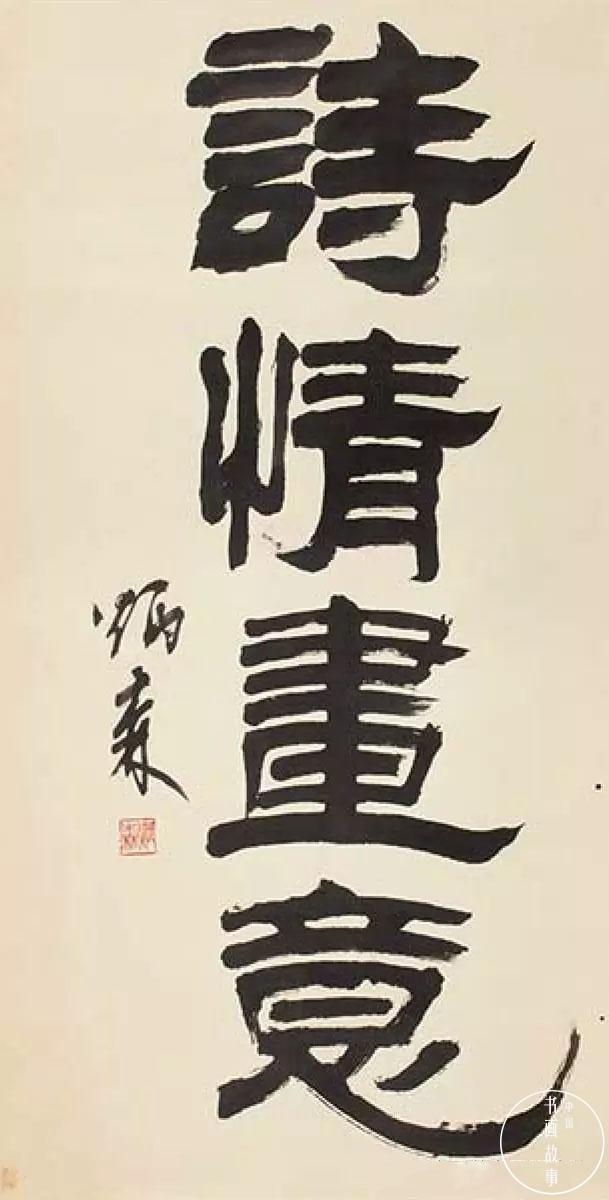 詩情畫意
炳森
中国
书画故事